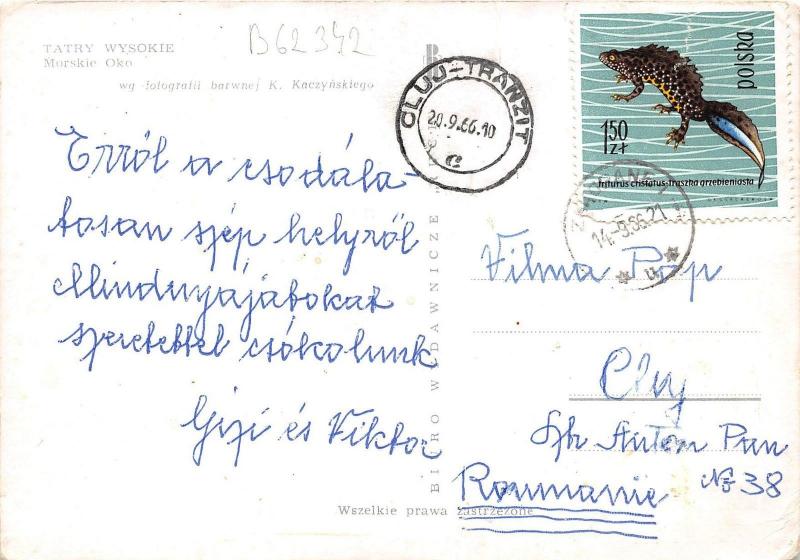 TATRY WYSOKIE
Morskie Oko
wg fotografii barwnej K. Kaczyńskiego
B62342
CLUJ-TRANZIT
20.9.66.10
e
polska
1,50
zł
triturus cristatus-traszka grzebieniasta
14.-9.66.21
Erről a csodála-
tosan szép helyről
Mindnyájatokat
szeretettel csókolunk
Gizi és Viktor
BIURO WYDAWNICZE
Vilma Pap
Cluj
Str Anton Pan
No 38
Roumanie
Wszelkie prawa zastrzeżone